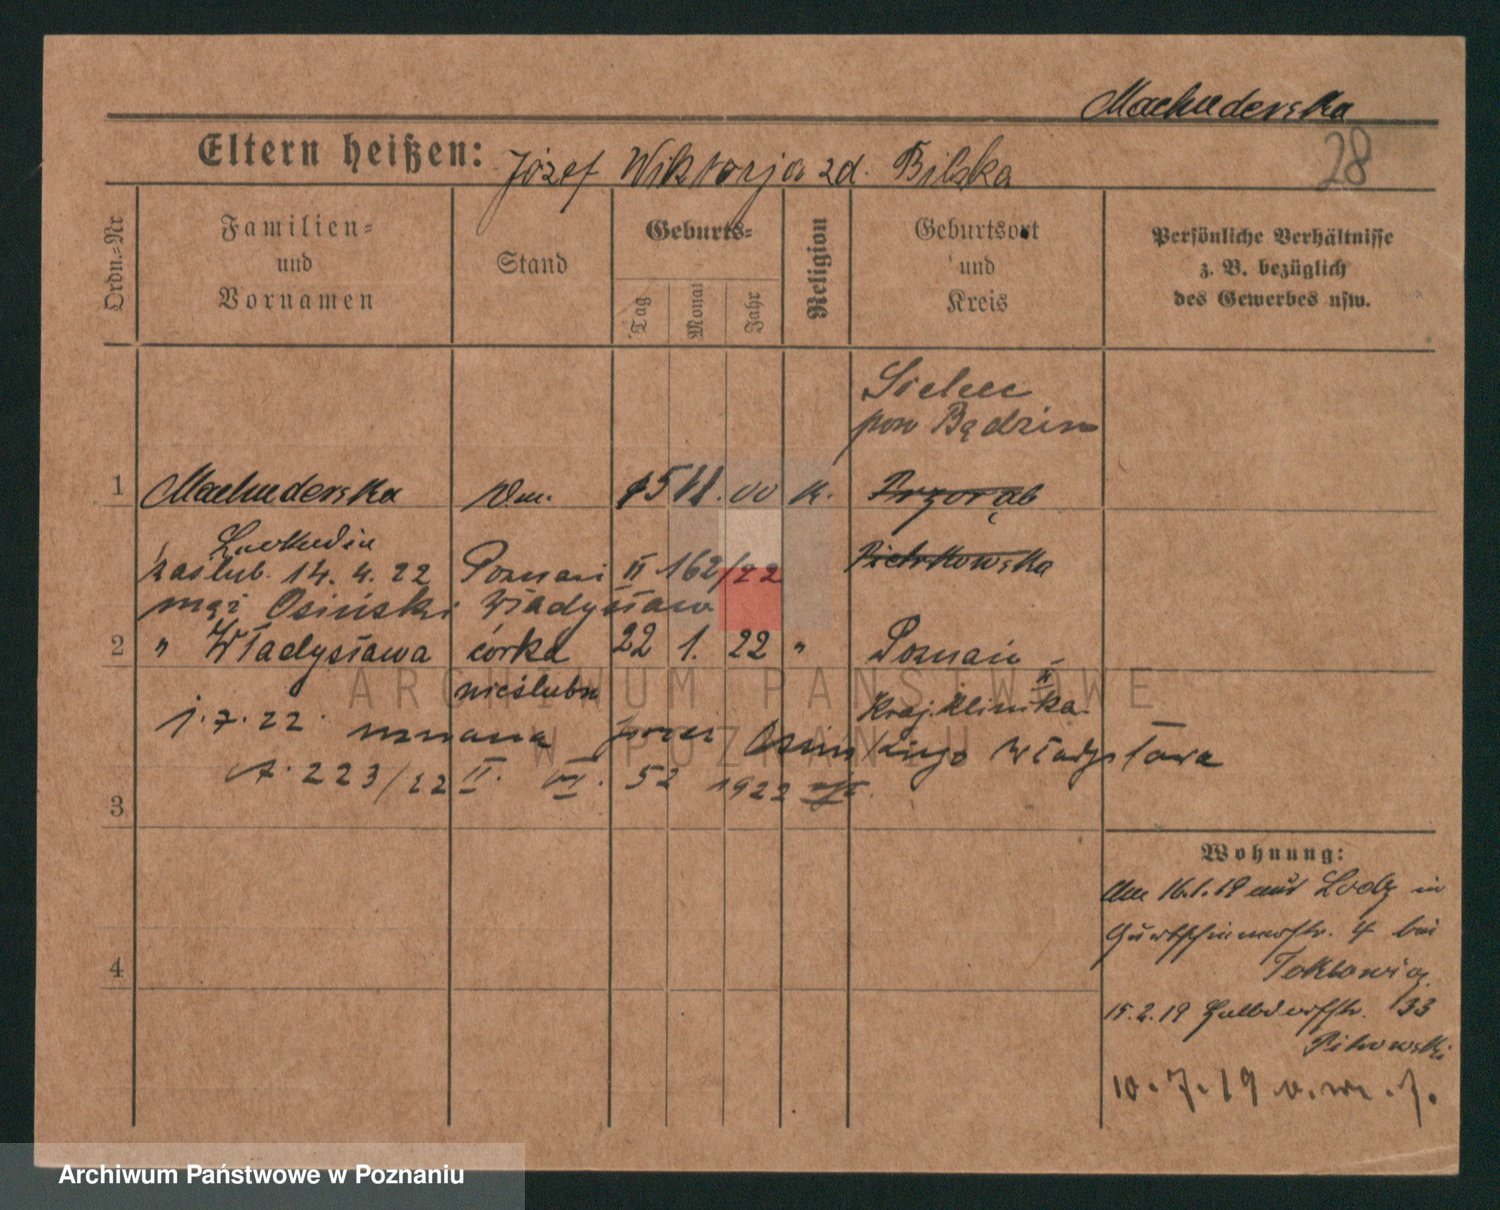 Machuderska
Eltern heißen: Józef Wiktorja zd. Bilska
28
Ordn.-Nr
Familien-
und
Vornamen
Stand
Geburts-
Tag
Monat
Jahr
Religion
Geburtsort
und
Kreis
Persönliche Verhältnisse
z. B. bezüglich
des Gewerbes usw.
pow Będzin
1 Machuderska 15 00 k. Przorąb
Leokadia
zaślub. 14. 4. 22 Poznań II 162/22 Piotrkowska
mąż Osiński Władysław
2 " Władysława córka 22 1. 22 " Poznań
nieślubn
Kraj. Klinika
1. 7. 22 uznana przez Osińskiego Władysława
A. 223/22 II. VI. 52 1922
3
4
Wohnung:
Am 16.1.19 aus Lodz in
4 bei
15.2.19 Halbdorfstr. 33
10. 7. 19
ARCHIWUM PAŃSTWOWE
W POZNANIU
Archiwum Państwowe w Poznaniu